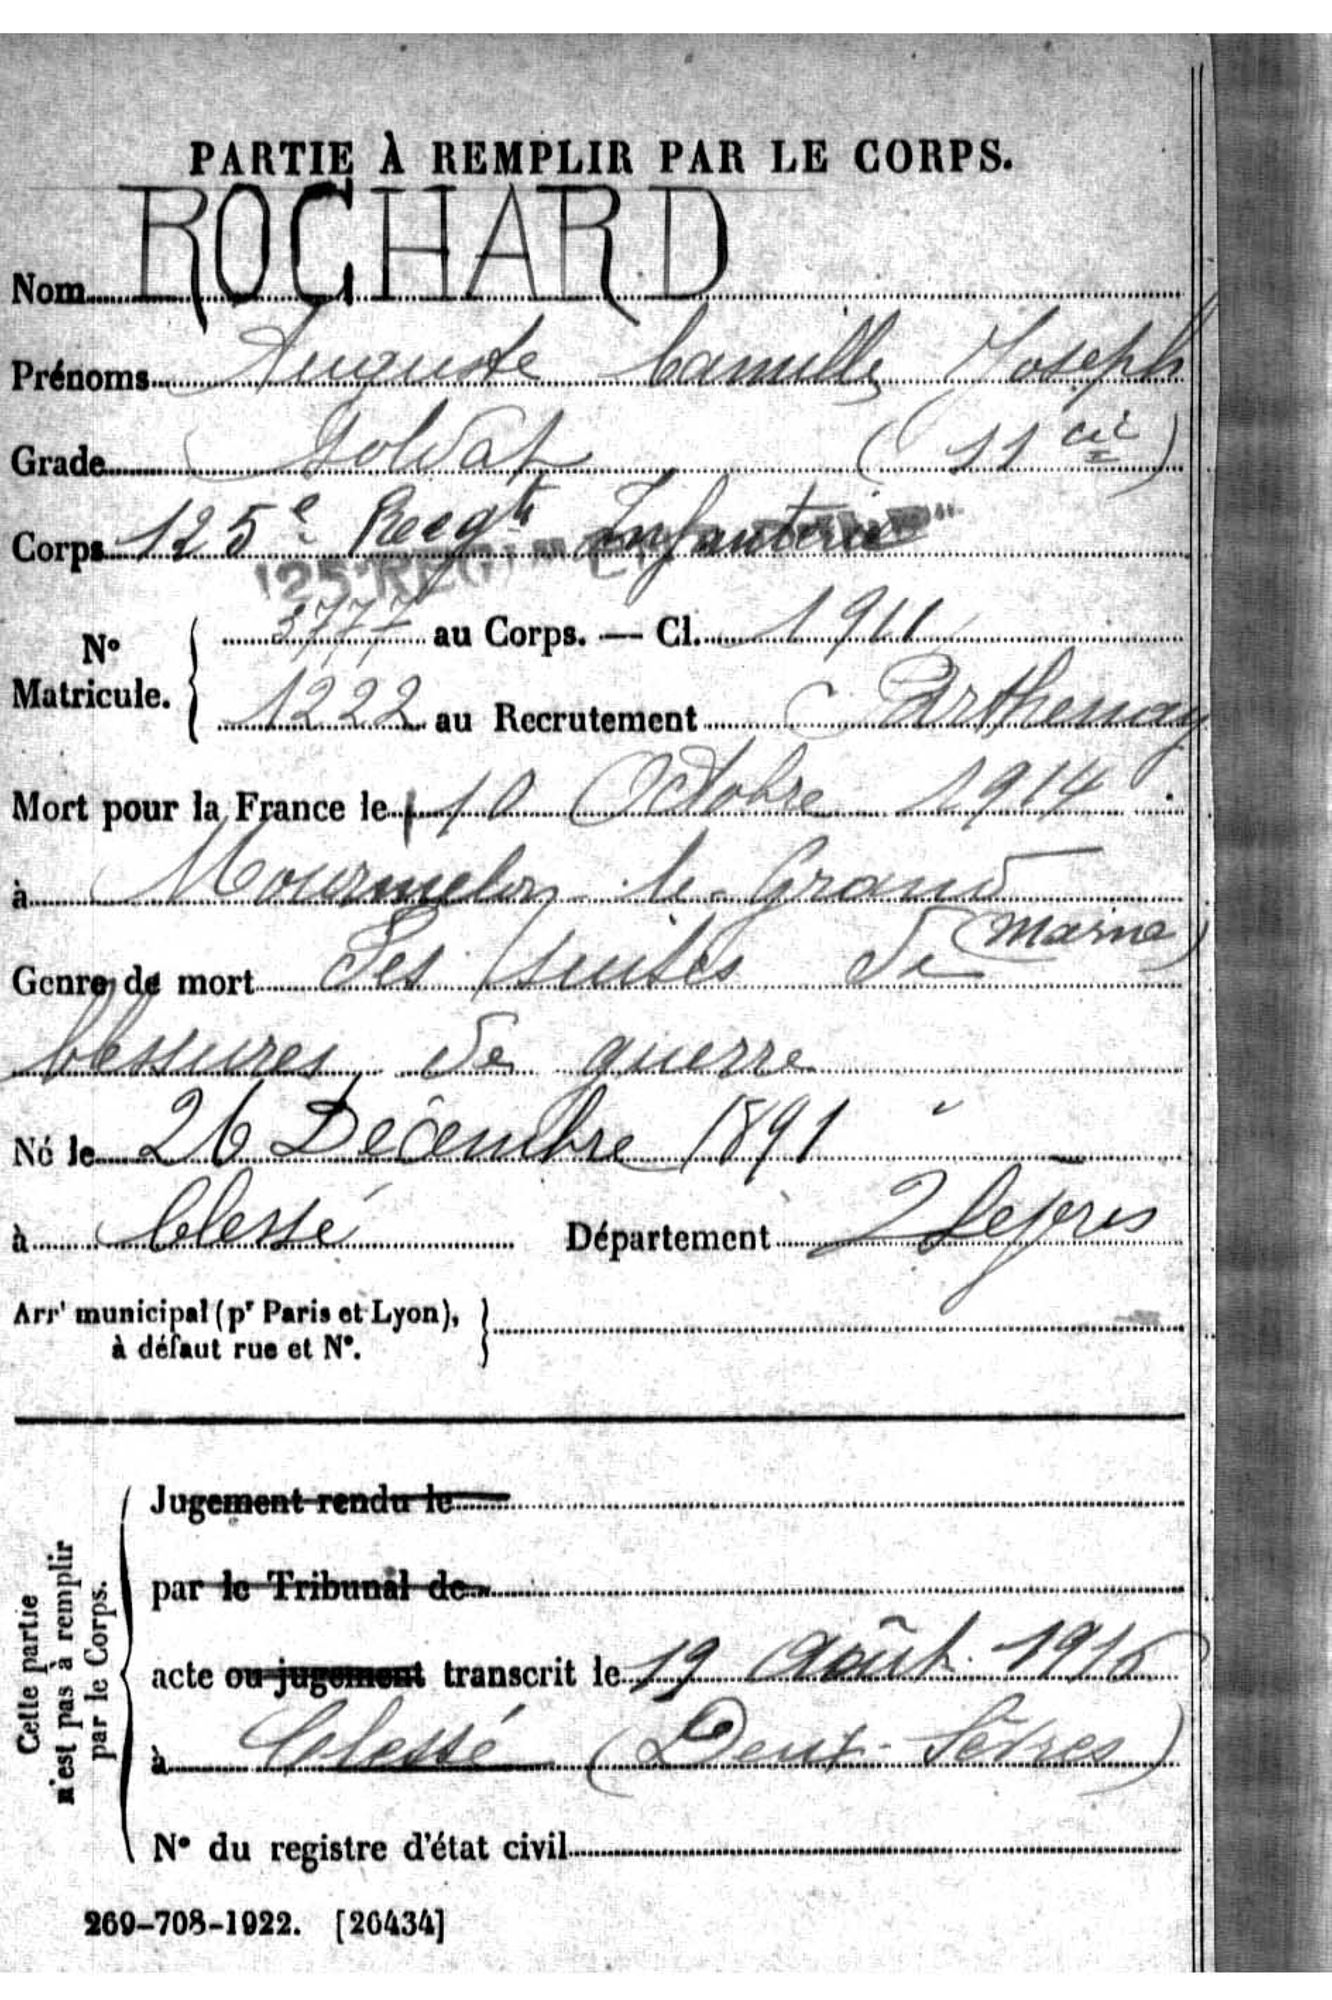 PARTIE À REMPLIR PAR LE CORPS.
Nom ROCHARD
Prénoms Auguste Camille Joseph
Grade Soldat (11 cie)
Corps 125e Regt Infanterie
125e REG
N° Matricule. { 3777 au Corps. — Cl. 1911
1222 au Recrutement Parthenay
Mort pour la France le 10 Octobre 1914
à Mourmelon-le-Grand
(Marne)
Genre de mort Des suites de
blessures de guerre
Né le 26 Décembre 1891
à Clessé Département 2 Sèvres
Arrt municipal (pr Paris et Lyon),
à défaut rue et N°.
Cette partie
n'est pas à remplir
par le Corps.
Jugement rendu le
par le Tribunal de
acte ou jugement transcrit le 19 Août 1916
à Clessé (Deux-Sèvres)
N° du registre d'état civil
269-708-1922. [26434]